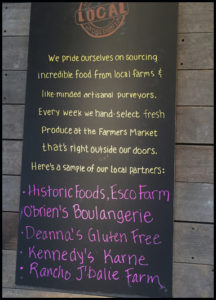 LOCAL
We pride ourselves on sourcing
incredible food from local farms &
like-minded artisanal purveyors.
Every week we hand-select fresh
Produce at the Farmers Market
that's right outside our doors.
Here's a sample of our local partners:
• Historic Foods, Esco Farm
• O'brien's Boulangerie
• Deanna's Gluten Free
• Kennedy's Karne
• Rancho J'balie Farm